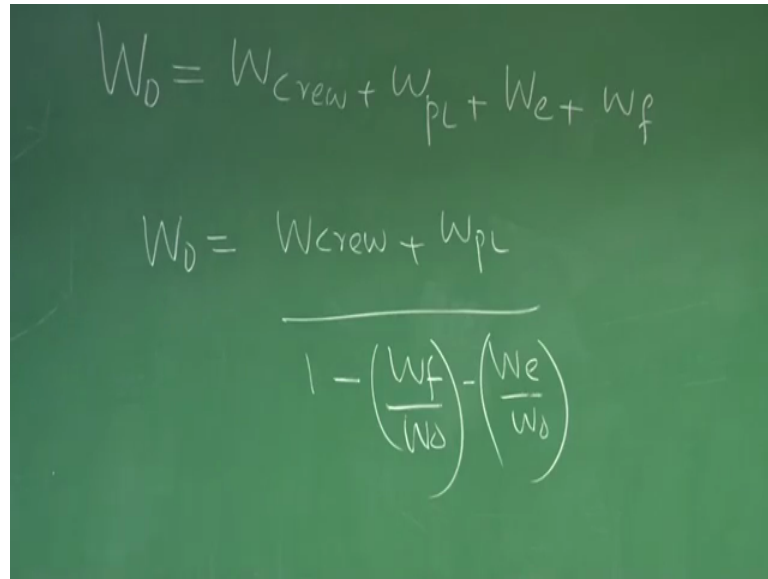 W₀ = W_crew + W_PL + W_e + W_f
W₀ = W_crew + W_PL
1 - (W_f / W₀) - (W_e / W₀)